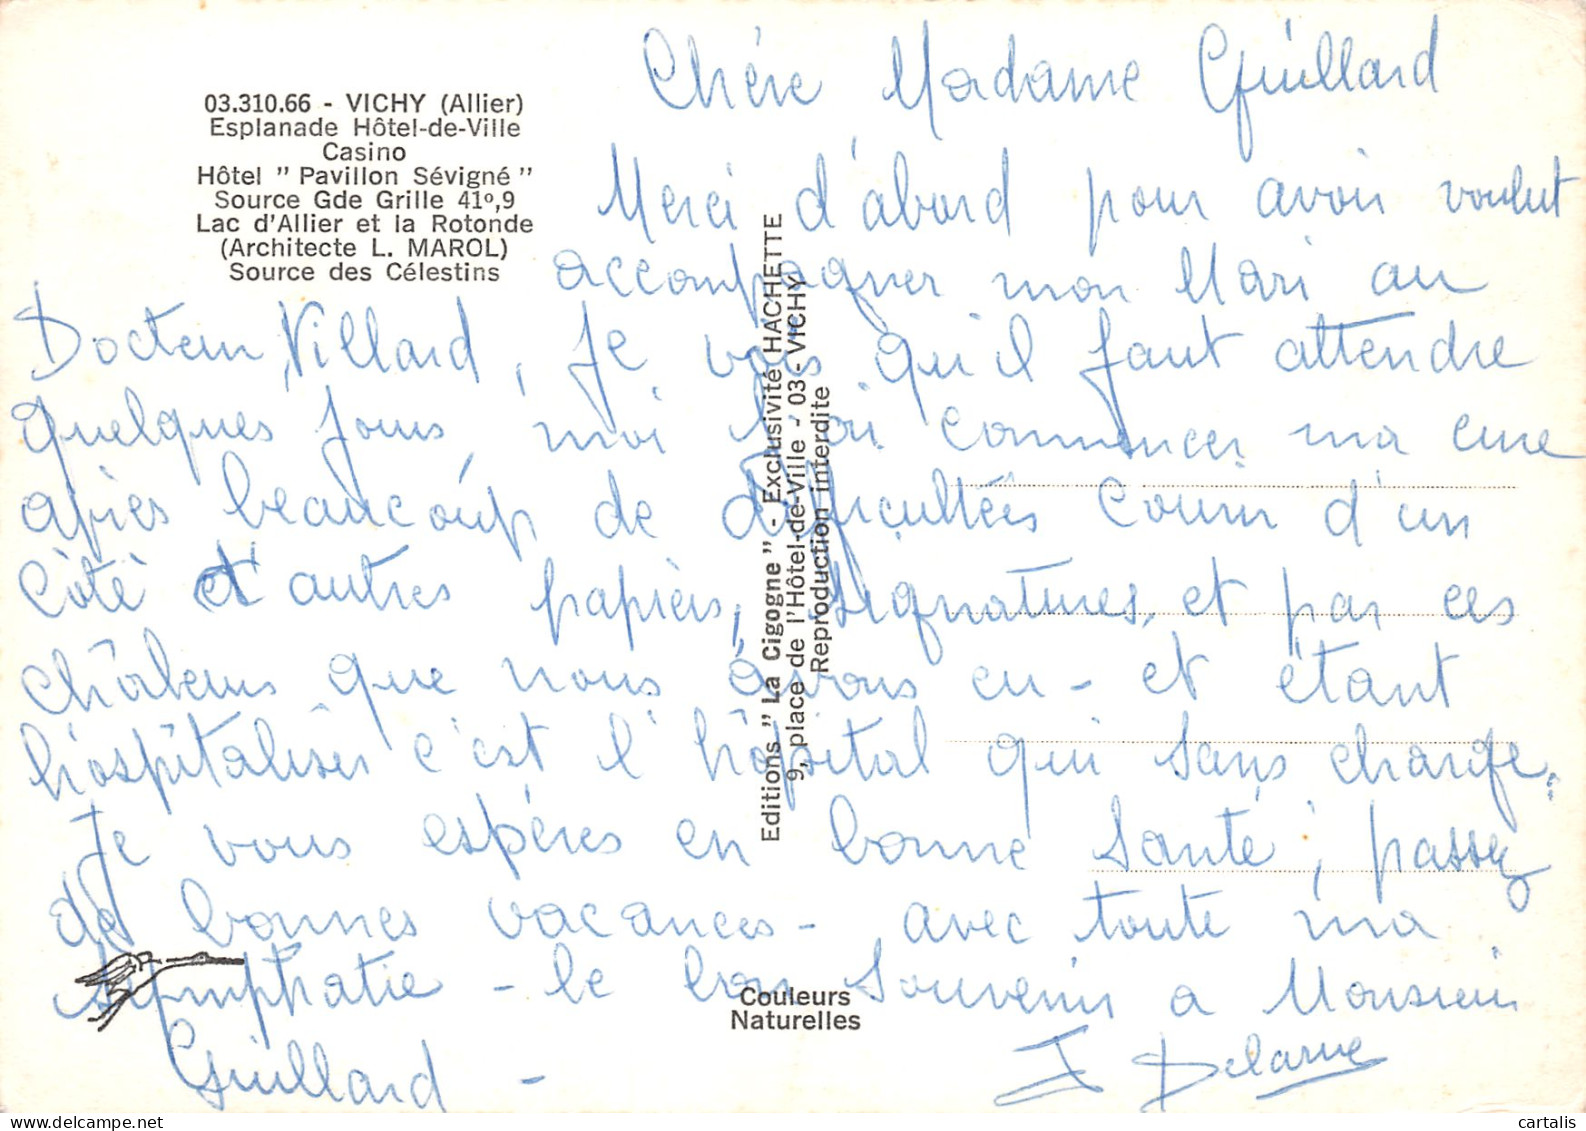 03.310.66 - VICHY (Allier)
Esplanade Hôtel-de-Ville
Casino
Hôtel " Pavillon Sévigné "
Source Gde Grille 41º,9
Lac d'Allier et la Rotonde
(Architecte L. MAROL)
Source des Célestins
Chére Madame Guillard
Merci d'abord pour avoir voulut
accompagner mon Mari au
Docteur Villard, Je vois qu'il faut attendre
quelques jours, moi commencer ma cure
après beaucoup de difficultées Courir d'un
Côté et d'autres papiers, signatures, et par ces
chaleurs que nous avons eu - et étant
hospitaliser c'est l'hôpital qui sans charge.
Je vous espéres en bonne Santé, passez
de bonnes vacances - avec toute ma
symphatie - le bon Souvenir a Monsieur
Guillard -
J Delarue
Editions " La Cigogne " - Exclusivité HACHETTE
9, place de l'Hôtel-de-Ville - 03 - VICHY
Reproduction interdite
Couleurs
Naturelles
cartalis